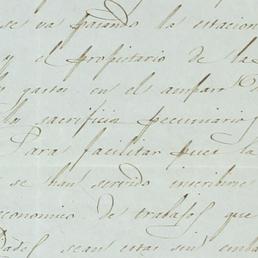 se va pasando la estacion
y el propietario de la
gastos en el amparo
los sacrificios pecuniarios
Para facilitar pues la
se han servido inscribirse
economico de trabajos que
sean estas sin emba